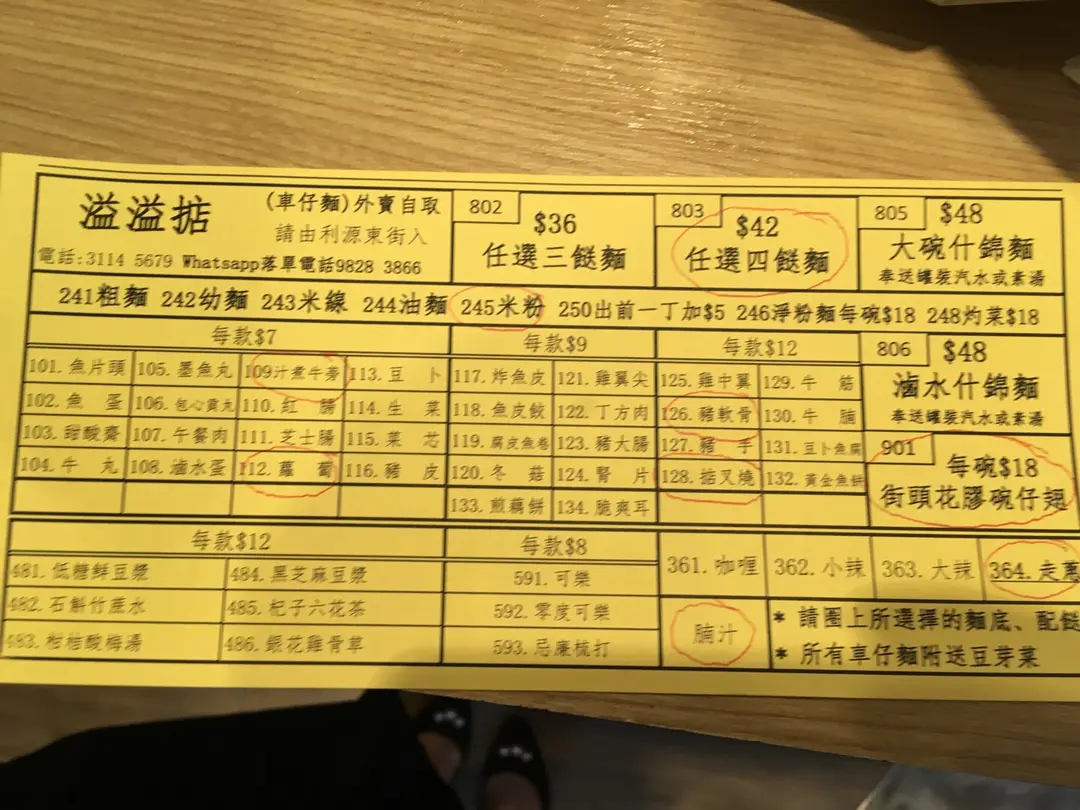 溢溢掂
(車仔麵)外賣自取
請由利源東街入
電話:3114 5679 Whatsapp落單電話9828 3866
802
$36
任選三餸麵
803
$42
任選四餸麵
805
$48
大碗什錦麵
奉送罐裝汽水或素湯
241粗麵 242幼麵 243米線 244油麵 245米粉 250出前一丁加$5 246淨粉麵每碗$18 248灼菜$18
每款$7
每款$9
每款$12
806
$48
滷水什錦麵
奉送罐裝汽水或素湯
101.魚片頭 105.墨魚丸 109汁煮牛蒡 113.豆 卜 117.炸魚皮 121.雞翼尖 125.雞中翼 129.牛 筋
102.魚 蛋 106.包心貢丸 110.紅 腸 114.生 菜 118.魚皮餃 122.丁方肉 126.豬軟骨 130.牛 腩
103.甜酸齋 107.午餐肉 111.芝士腸 115.菜 芯 119.腐皮魚卷 123.豬大腸 127.豬 手 131.豆卜魚腐
104.牛 丸 108.滷水蛋 112.蘿 蔔 116.豬 皮 120.冬 菇 124.腎 片 128.掂叉燒 132.黃金魚餅
133.煎藕餅 134.脆爽耳
901
每碗$18
街頭花膠碗仔翅
每款$12
每款$8
481.低糖鮮豆漿 484.黑芝麻豆漿 591.可樂
482.石斛竹蔗水 485.杞子六花茶 592.零度可樂
483.柑桔酸梅湯 486.銀花雞骨草 593.忌廉梳打
361.咖喱 362.小辣 363.大辣 364.走蔥
腩汁
* 請圈上所選擇的麵底、配餸
* 所有車仔麵附送豆芽菜